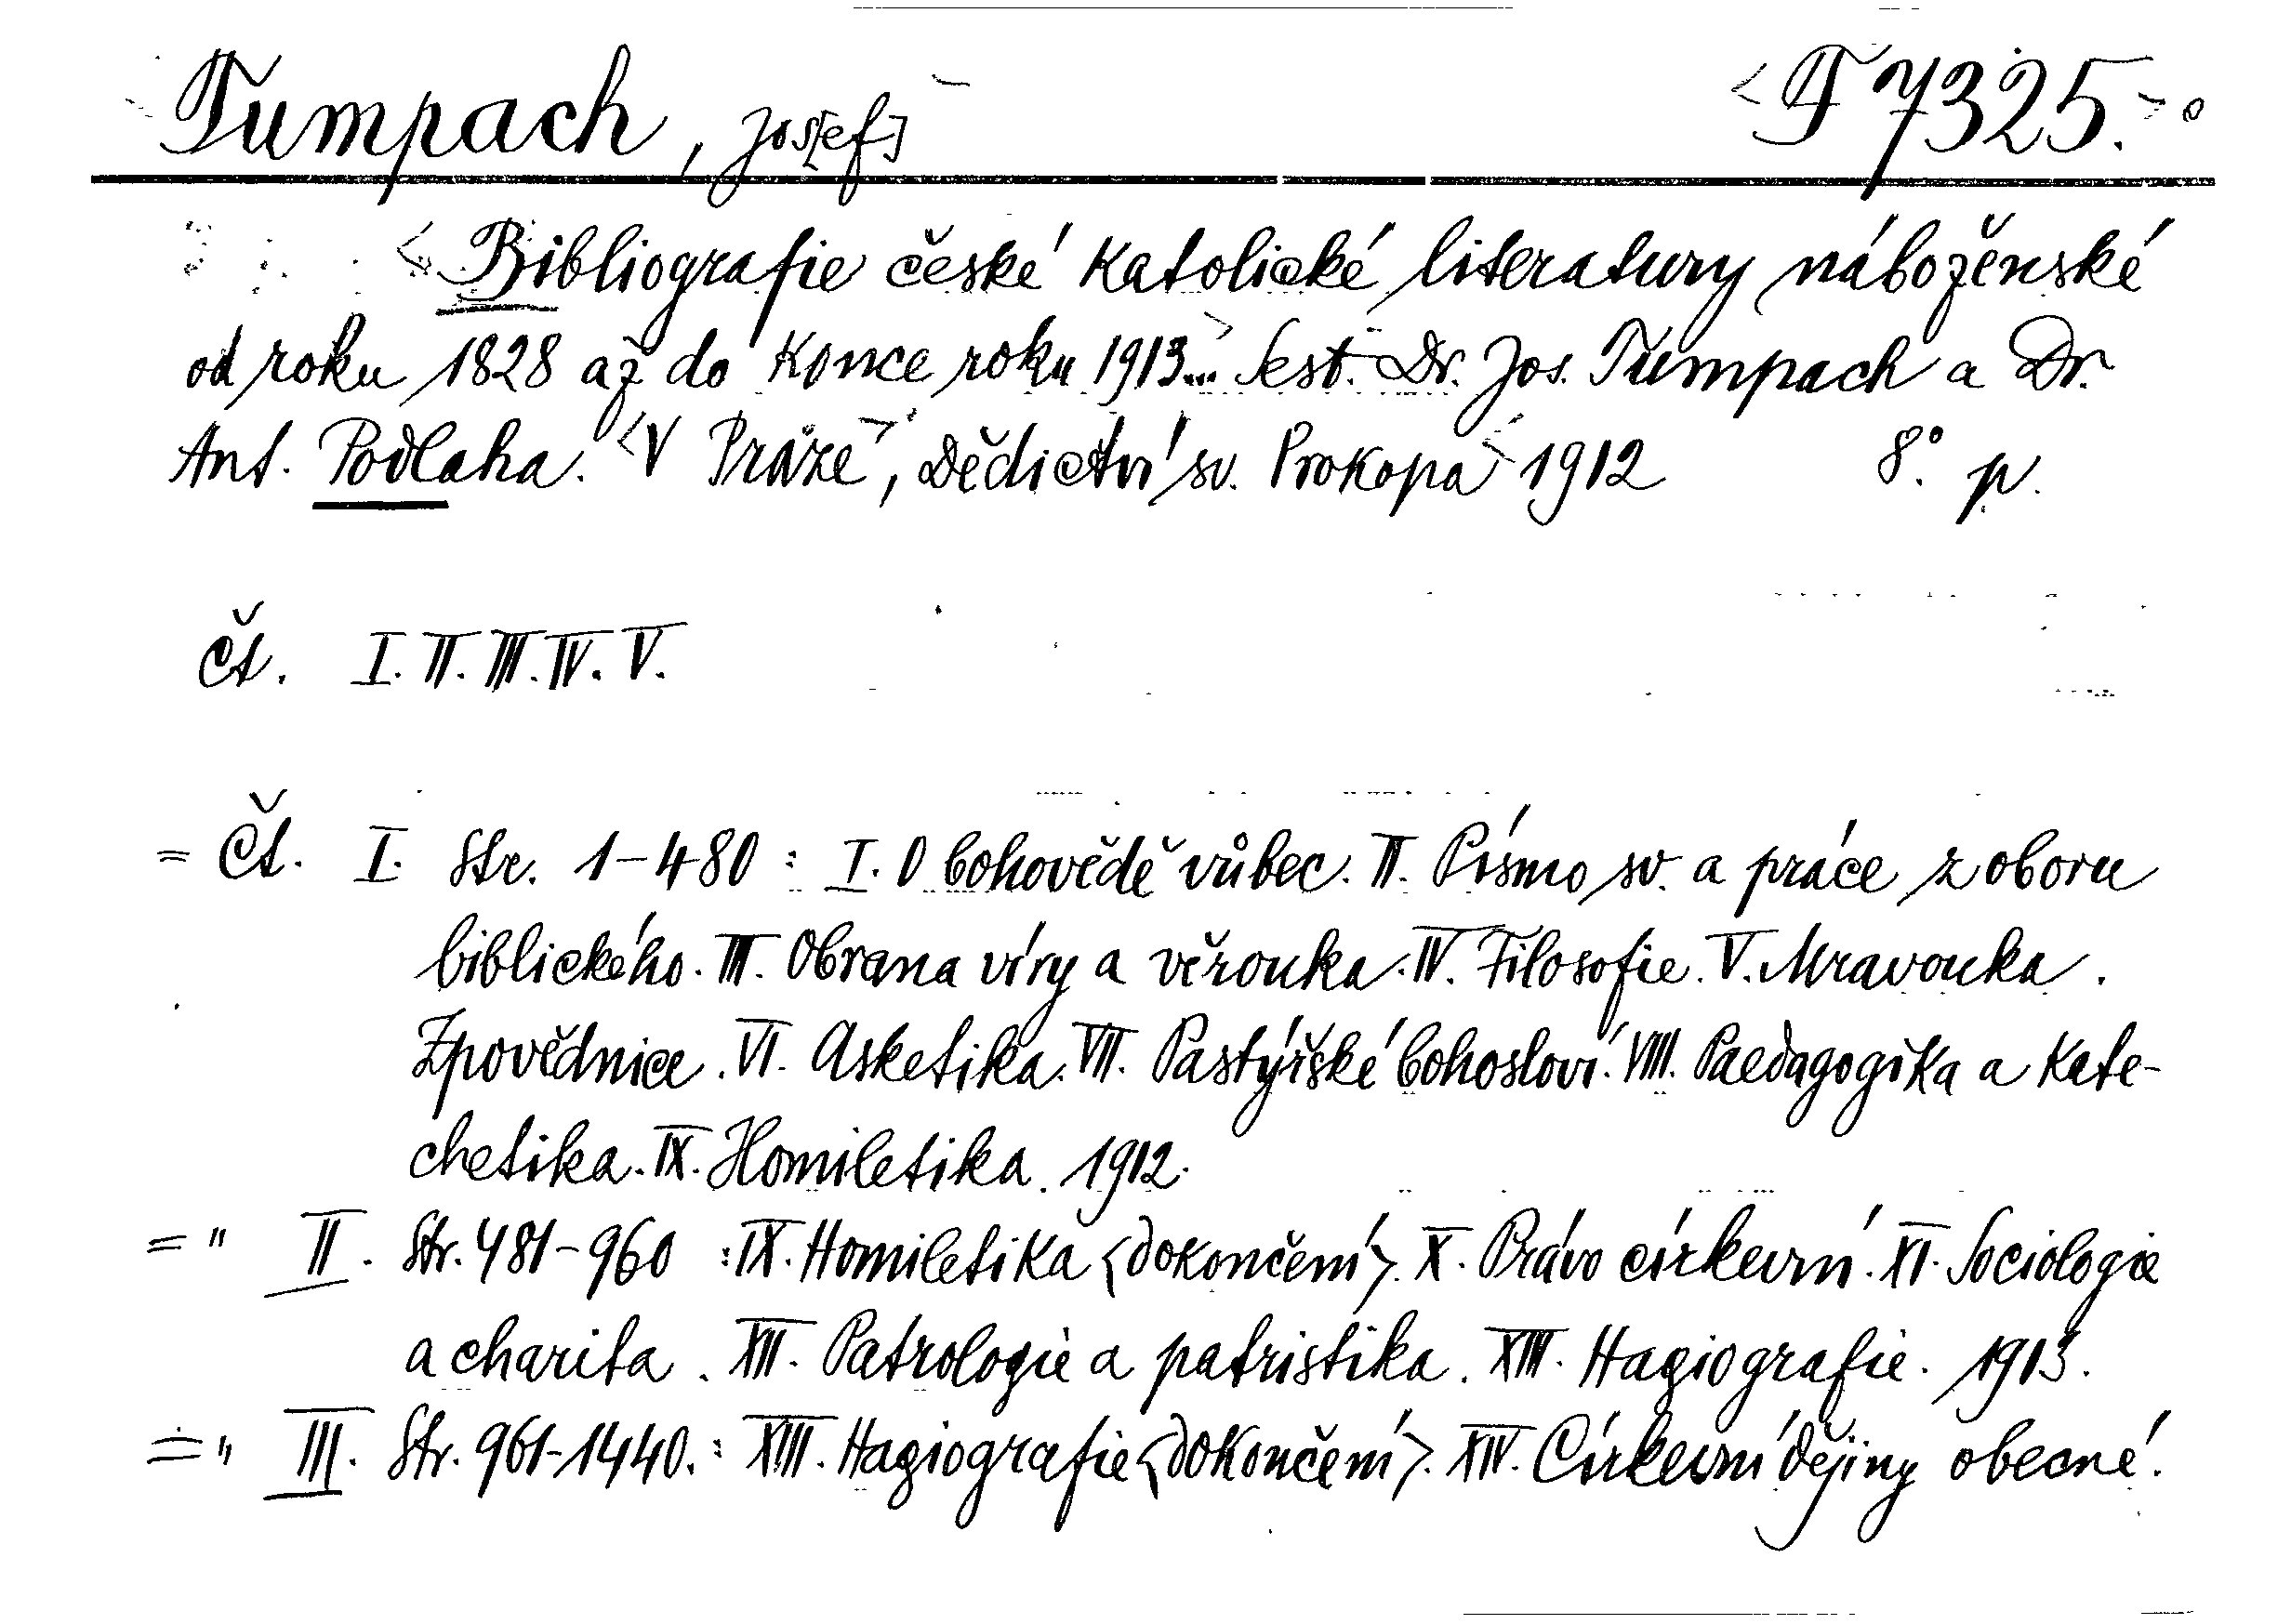 Tumpach, Jos[ef]
T 7325.
Bibliografie české katolické literatury náboženské
od roku 1828 až do konce roku 1913... Sest. Dr. Jos. Tumpach a Dr.
Ant. Podlaha. V Praze, Dědictví sv. Prokopa 1912 8°. p.
Čt. I. II. III. IV. V.
= Čt. I. Str. 1-480 : I. O bohovědě vůbec. II. Písmo sv. a práce z oboru
biblického. III. Obrana víry a věrouka. IV. Filosofie. V. Mravouka.
Zpovědnice. VI. Asketika. VII. Pastýřské bohosloví. VIII. Paedagogika a kate-
chetika. IX. Homiletika. 1912.
= " II. Str. 481-960 : IX. Homiletika <dokončení>. X. Právo církevní. XI. Sociologie
a charita. XII. Patrologie a patristika. XIII. Hagiografie. 1913.
= " III. Str. 961-1440. : XIII. Hagiografie <dokončení>. XIV. Církevní dějiny obecné.